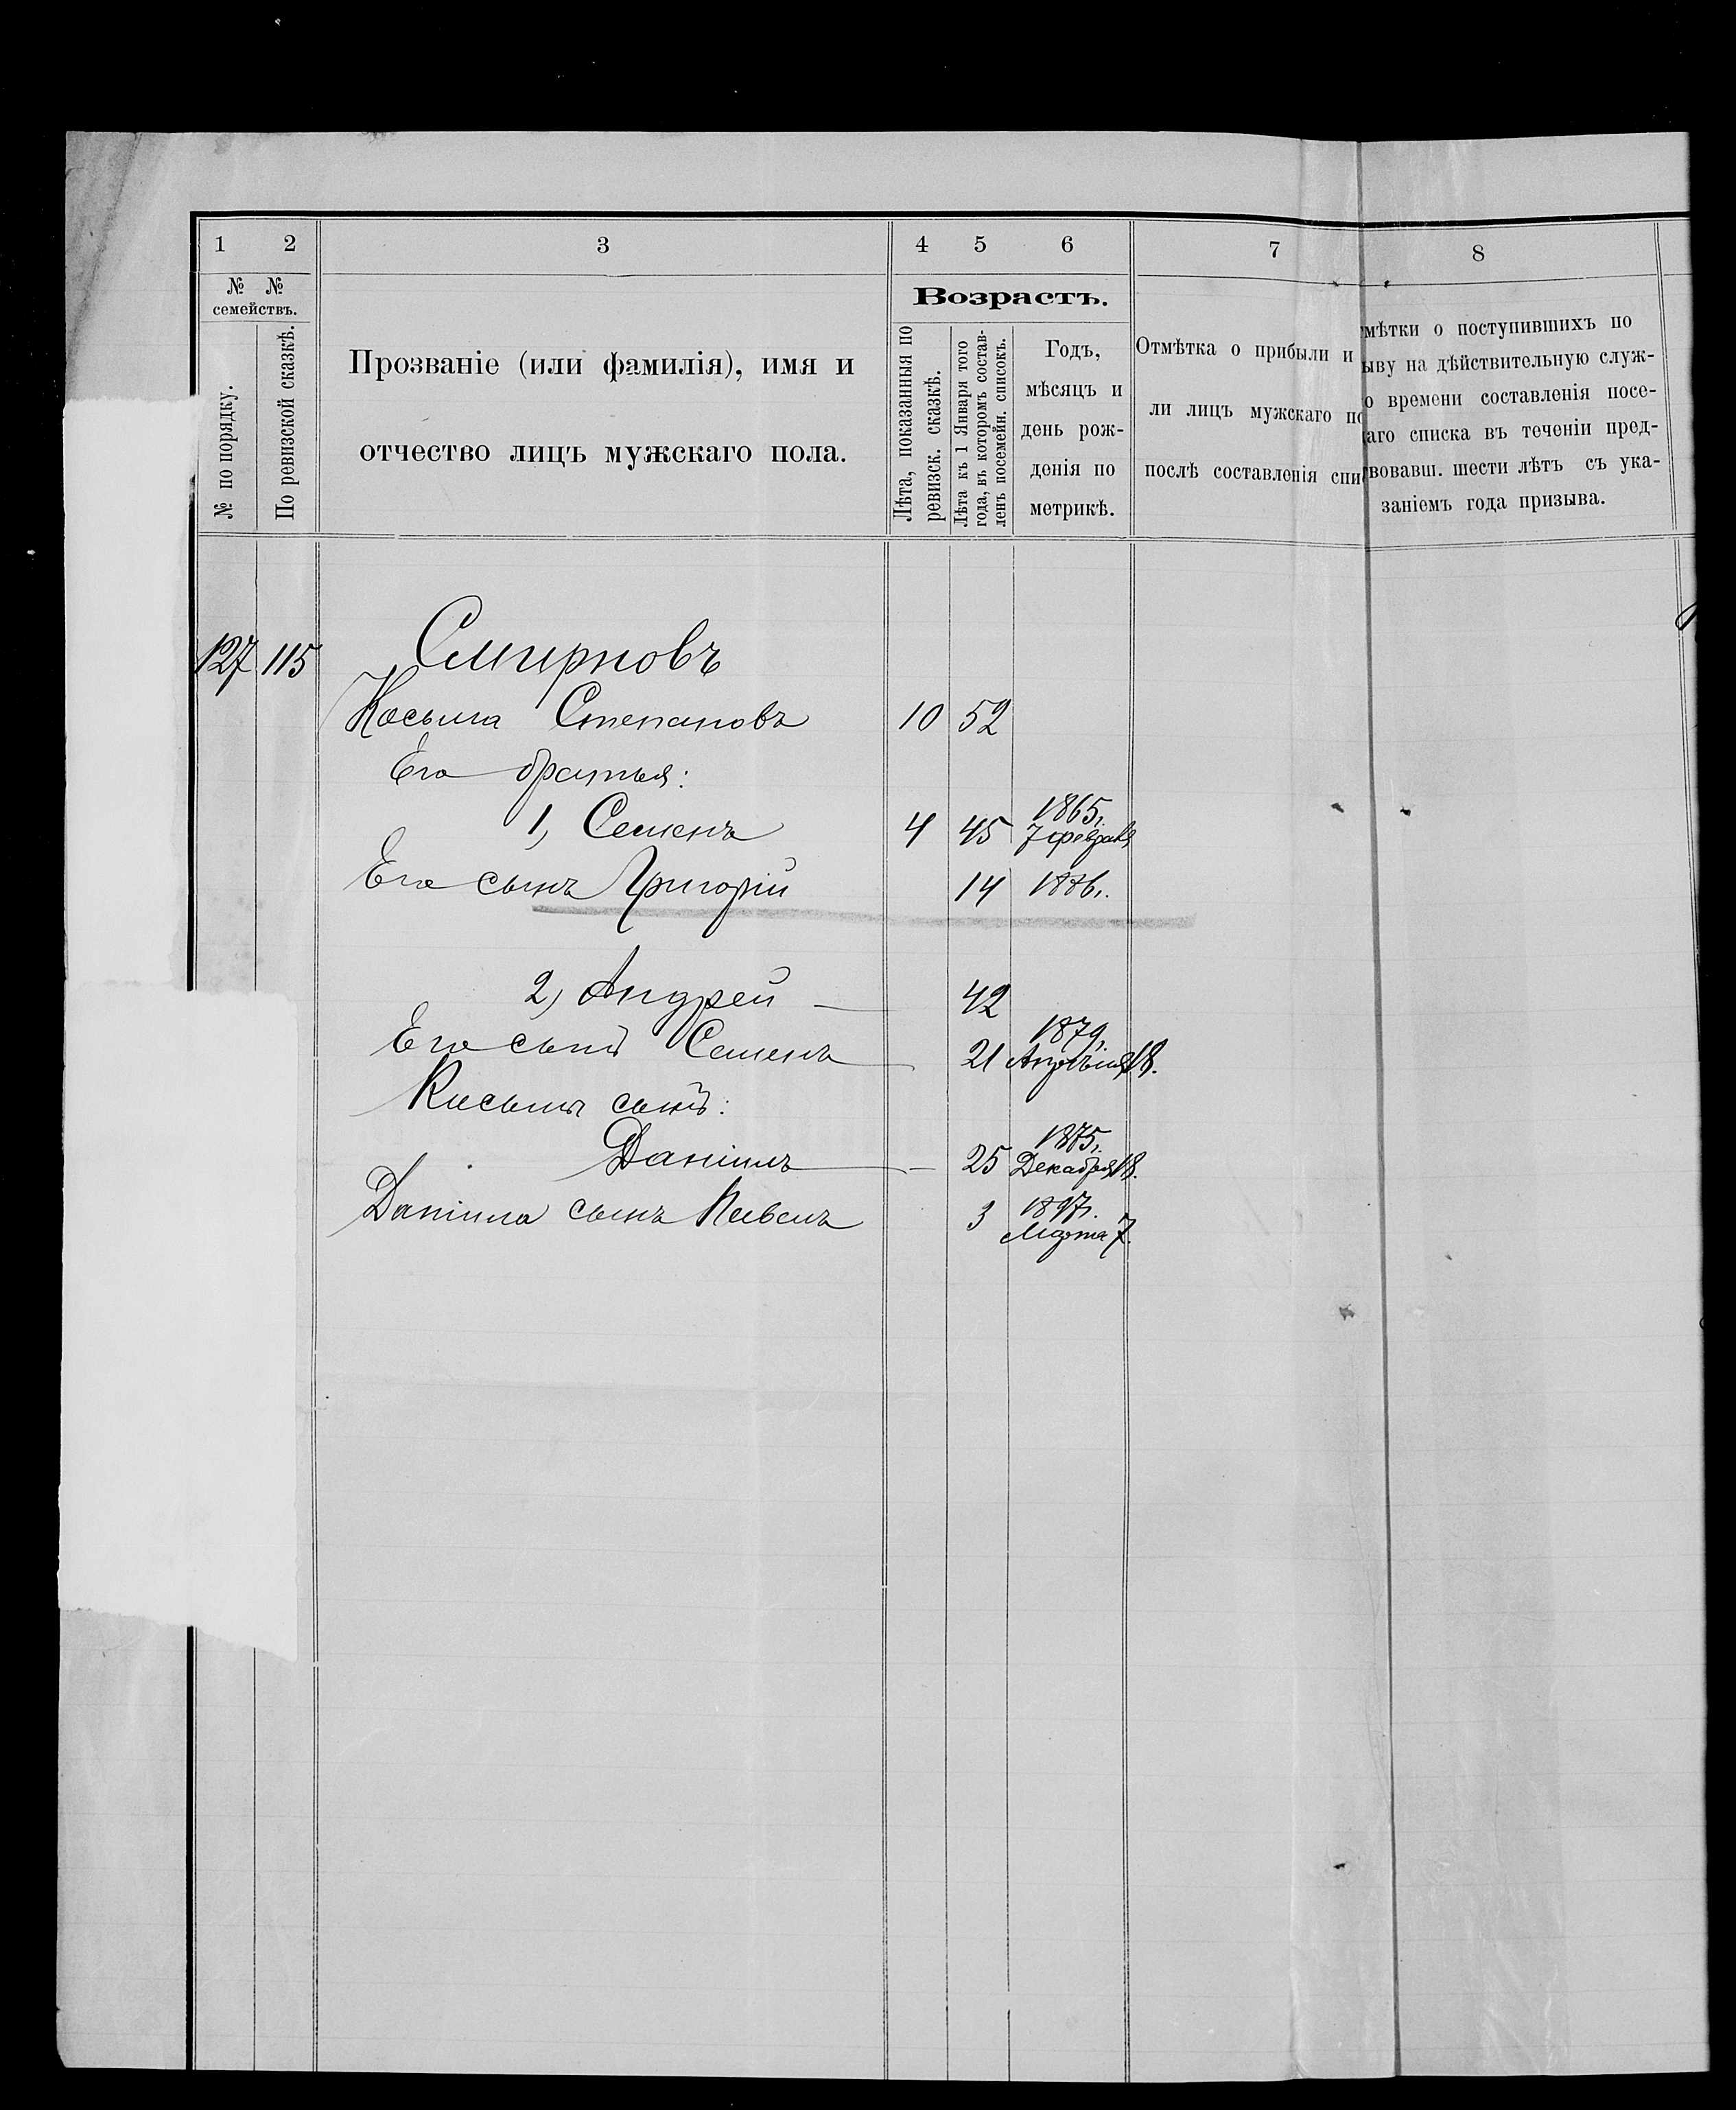 1 2 3 4 5 6 7 8
№ № семействъ.
№ по порядку.
По ревизской сказкѣ.
Прозваніе (или фамилія), имя и
отчество лицъ мужскаго пола.
Возрастъ.
Лѣта, показанныя по
ревизск. сказкѣ.
Лѣта къ 1 Января того
года, въ которомъ состав-
ленъ посемейн. списокъ.
Годъ,
мѣсяцъ и
день рож-
денія по
метрикѣ.
Отмѣтка о прибыли и
ли лицъ мужскаго по
послѣ составленія спи
мѣтки о поступившихъ по
ыву на дѣйствительную служ-
о времени составленія посе-
аго списка въ теченіи пред-
твовавш. шести лѣтъ съ ука-
заніемъ года призыва.
127 115 Смирновъ
Косьма Степановъ 10 52
Его братья:
1, Семенъ 4 45 1865г. 7 февраля
Его сынъ Григорій 14 1886г.
2, Андрей 42
Его сынъ Семенъ 21 1879г. Апрѣля 18.
Косьмы сынъ:
Даніилъ 25 1875г. Декабря 18.
Даніила сынъ Павелъ 3 1897г. Марта 7.